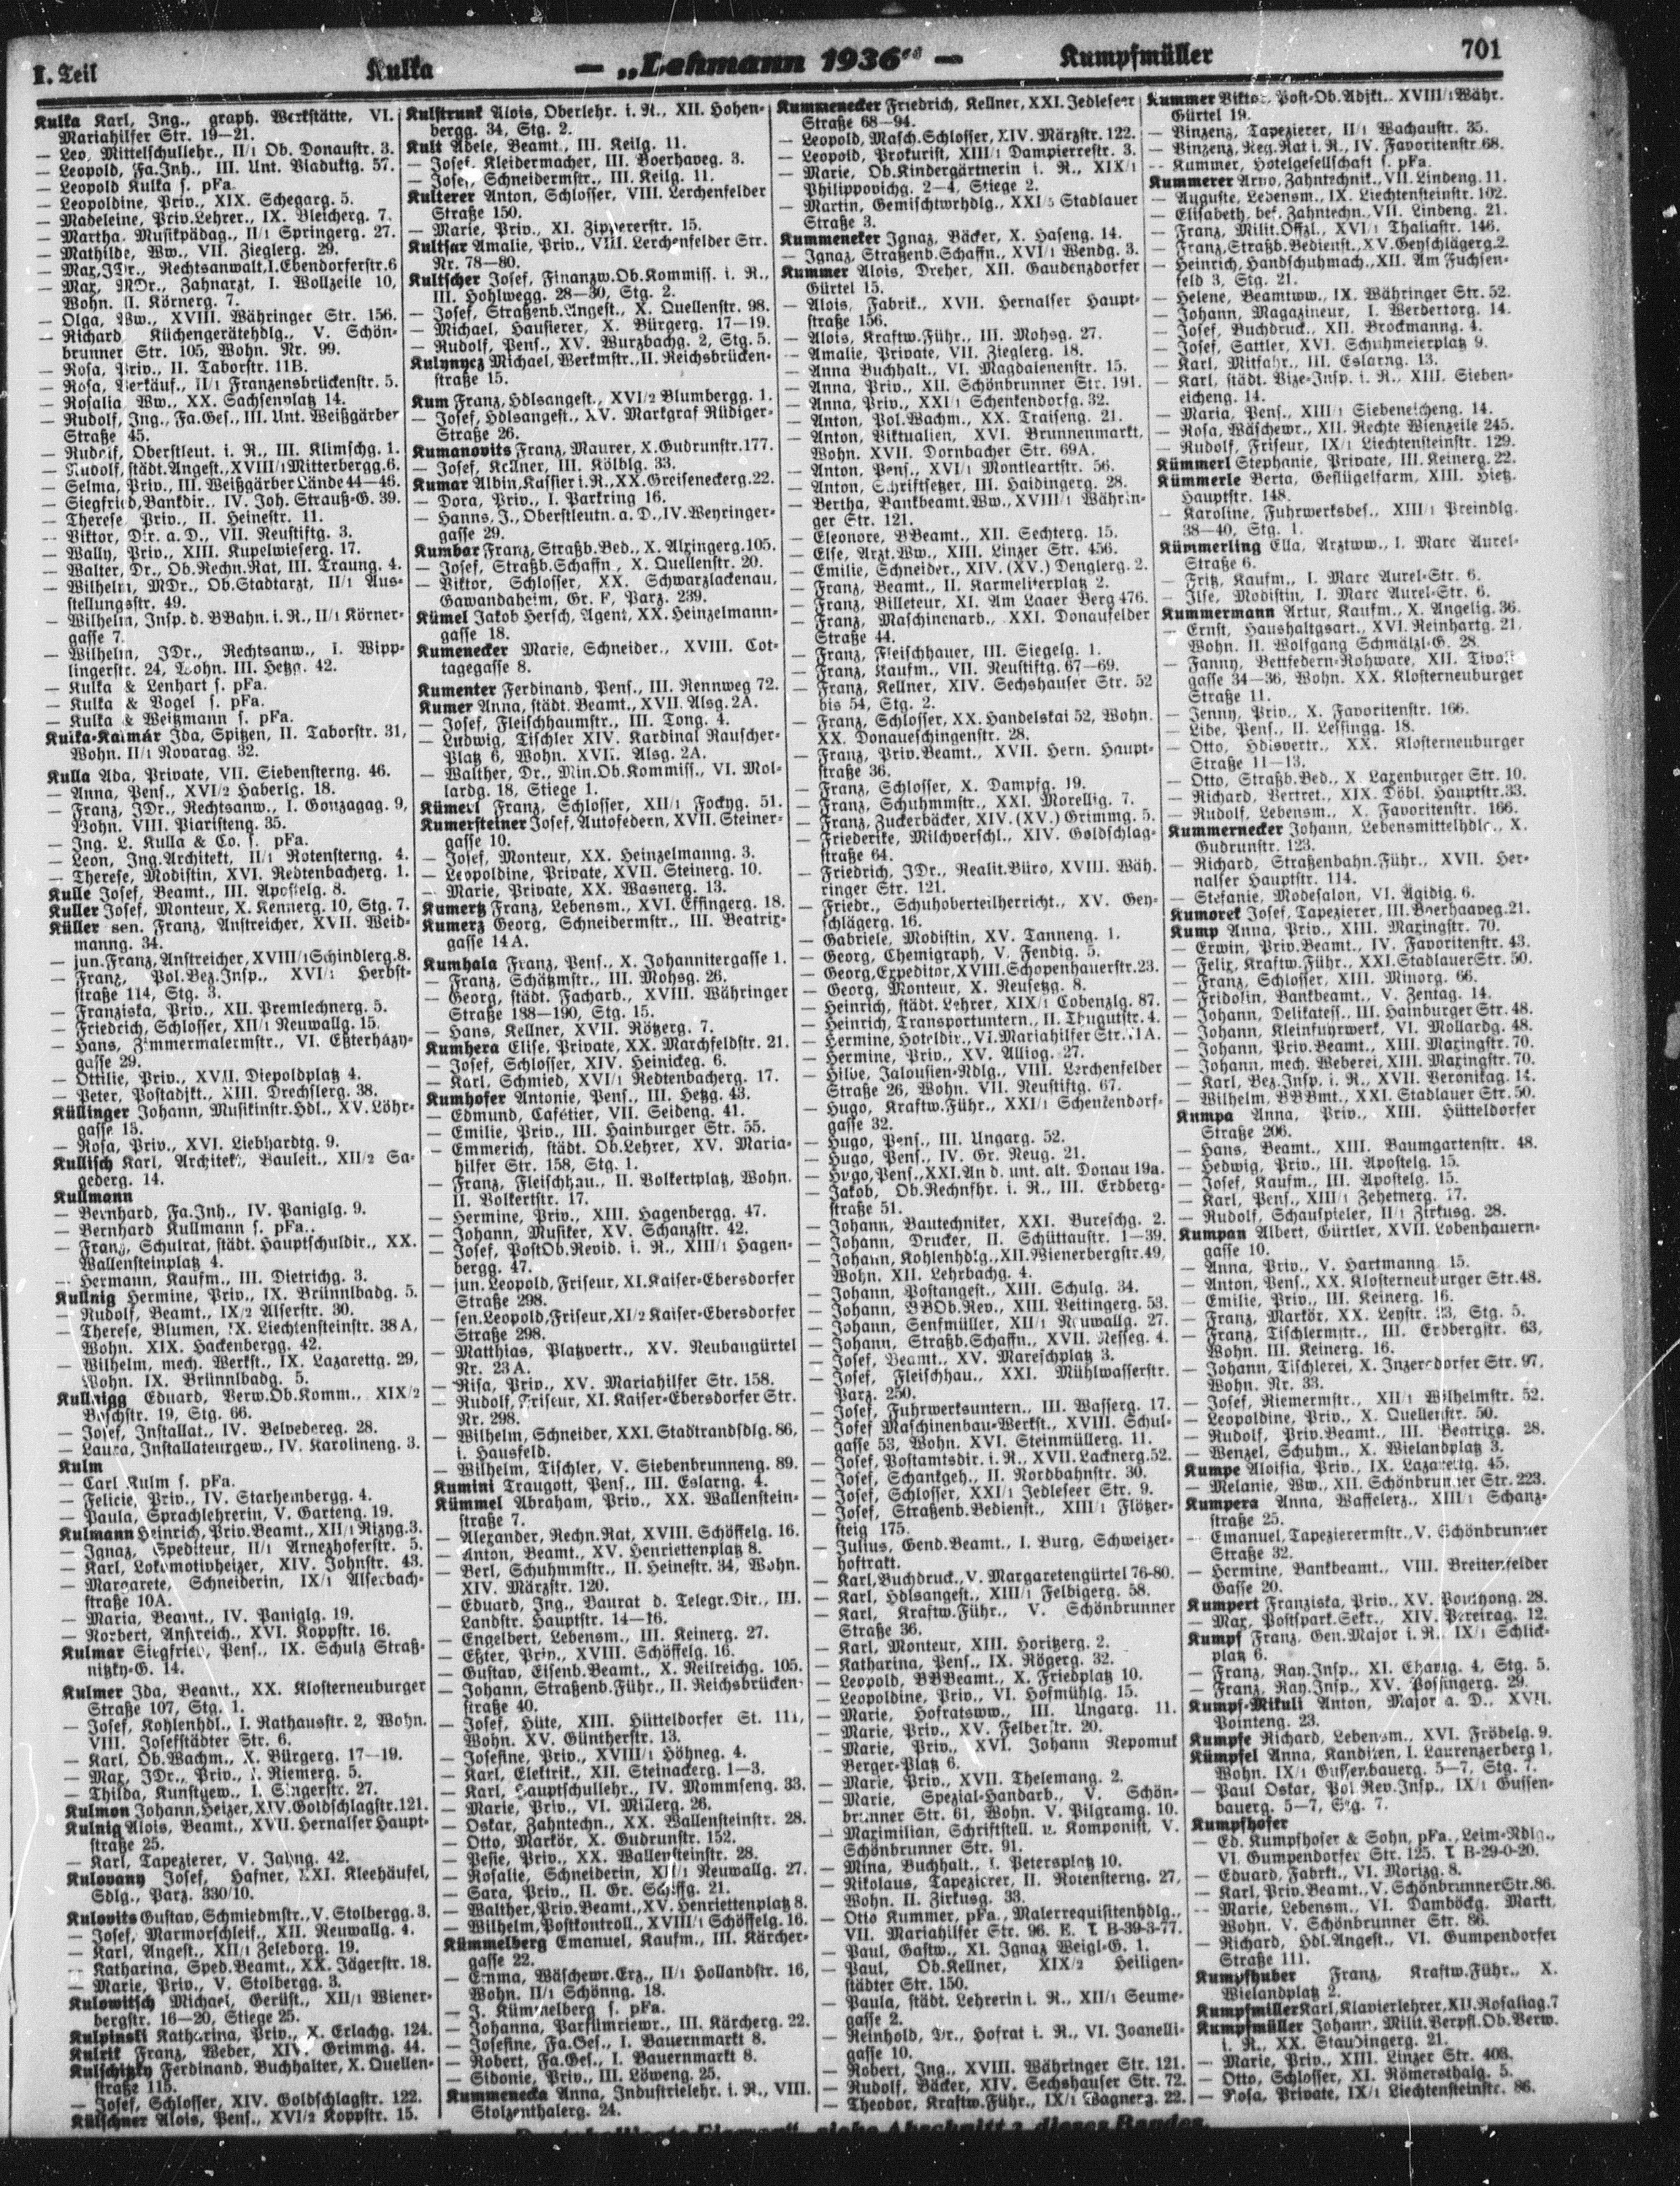 I. Teil
Kulka
— „Lehmann 1936“ —
Kumpfmüller
701
Kulka Karl, Ing., graph. Werkstätte, VI.
Mariahilfer Str. 19—21.
— Leo, Mittelschullehr., II/1 Ob. Donaustr. 3.
— Leopold, Fa.Inh., III. Unt. Viaduktg. 57.
— Leopold Kulka s. pFa.
— Leopoldine, Priv., XIX. Schegarg. 5.
— Madeleine, Priv.Lehrer., IX. Bleicherg. 7.
— Martha, Musikpädag., II/1 Springerg. 27.
— Mathilde, Ww., VII. Zieglerg. 29.
— Max, JDr., Rechtsanwalt, I. Ebendorferstr. 6
— Max, MDr., Zahnarzt, I. Wollzeile 10,
Wohn. II. Körnerg. 7.
— Olga, Ww., XVIII. Währinger Str. 156.
— Richard Küchengerätehdlg., V. Schön-
brunner Str. 105, Wohn. Nr. 99.
— Rosa, Priv., II. Taborstr. 11B.
— Rosa, Verkäuf., II/1 Franzensbrückenstr. 5.
— Rosalia Ww., XX. Sachsenplatz 14.
— Rudolf, Ing., Fa.Ges., III. Unt. Weißgärber
Straße 45.
— Rudolf, Oberstleut. i. R., III. Klimschg. 1.
— Rudolf, städt. Angest., XVIII/1 Mitterbergg. 6.
— Selma, Priv., III. Weißgärber Lände 44—46.
— Siegfried, Bankdir., IV. Joh. Strauß-G. 39.
— Therese Priv., II. Heinestr. 11.
— Viktor, Dir. a. D., VII. Neustiftg. 3.
— Wally, Priv., XIII. Kupelwieserg. 17.
— Walter, Dr., Ob.Rechn.Rat, III. Traung. 4.
— Wilhelm, MDr., Ob.Stadtarzt, II/1 Aus-
stellungsstr. 49.
— Wilhelm, Insp. d. BBahn. i. R., II/1 Körner-
gasse 7.
— Wilhelm, JDr., Rechtsanw., I. Wipp-
lingerstr. 24, Wohn. III. Hetzg. 42.
— Kulka & Lenhart s. pFa.
— Kulka & Vogel s. pFa.
— Kulka & Weitzmann s. pFa.
Kulka-Kalmár Ida, Spitzen, II. Taborstr. 31,
Wohn. II/1 Novarag. 32.
Kulla Ada, Private, VII. Siebensterng. 46.
— Anna, Pens., XVI/2 Haberlg. 18.
— Franz, JDr., Rechtsanw., I. Gonzagag. 9,
Wohn. VIII. Piaristeng. 35.
— Ing. L. Kulla & Co. s. pFa.
— Leon, Ing.Architekt, II/1 Rotensterng. 4.
— Therese, Modistin, XVI. Redtenbacherg. 1.
Kulle Josef, Beamt., III. Apostelg. 8.
Kuller Josef, Monteur, X. Kennerg. 10, Stg. 7.
Küller sen. Franz, Anstreicher, XVII. Weid-
manng. 34.
— jun. Franz, Anstreicher, XVIII/1 Schindlerg. 8.
— Franz, Pol.Bez.Insp., XVI/1 Herbst-
straße 114, Stg. 3.
— Franziska, Priv., XII. Premlechnerg. 5.
— Friedrich, Schlosser, XII/1 Neuwallg. 15.
— Hans, Zimmermalermstr., VI. Eßterházy-
gasse 29.
— Ottilie, Priv., XVII. Diepoldplatz 4.
— Peter, Postadjkt., XIII. Drechslerg. 38.
Küllinger Johann, Musikinstr.Hdl., XV. Löhr-
gasse 13.
— Rosa, Priv., XVI. Liebhardtg. 9.
Kullisch Karl, Architekt, Bauleit., XII/2 Sa-
gederg. 14.
Kullmann
— Bernhard, Fa.Inh., IV. Paniglg. 9.
— Bernhard Kullmann s. pFa.
— Franz, Schulrat, städt. Hauptschuldir., XX.
Wallensteinplatz 4.
— Hermann, Kaufm., III. Dietrichg. 3.
Kullnig Hermine, Priv., IX. Brünnlbadg. 5.
— Rudolf, Beamt., IX/2 Alserstr. 30.
— Therese, Blumen, IX. Liechtensteinstr. 38A,
Wohn. XIX. Hackenbergg. 42.
— Wilhelm, mech. Werkst., IX. Lazarettg. 29,
Wohn. IX. Brünnlbadg. 5.
Kullnigg Eduard, Verw.Ob.Komm., XIX/2
Boschstr. 19, Stg. 66.
— Josef, Installat., IV. Belvedereg. 28.
— Laura, Installateurgew., IV. Karolineng. 3.
Kulm
— Carl Kulm s. pFa.
— Felicie, Priv., IV. Starhembergg. 4.
— Paula, Sprachlehrerin, V. Garteng. 19.
Kulmann Heinrich, Priv.Beamt., XII/1 Rizyg. 3.
— Ignaz, Spediteur, II/1 Arnezhoferstr. 5.
— Karl, Lokomotivheizer, XIV. Johnstr. 43.
— Margarete, Schneiderin, IX/1 Alserbach-
straße 10A.
— Maria, Beamt., IV. Paniglg. 19.
— Norbert, Anstreich., XVI. Koppstr. 16.
Kulmar Siegfried, Pens., IX. Schulz Straß-
nitzky-G. 14.
Kulmer Ida, Beamt., XX. Klosterneuburger
Straße 107, Stg. 1.
— Josef, Kohlenhdl., I. Rathausstr. 2, Wohn.
VIII. Josefstädter Str. 6.
— Karl, Ob.Wachm., X. Bürgerg. 17—19.
— Max, JDr., Priv., I. Riemerg. 5.
— Thilda, Kunstgew., I. Singerstr. 27.
Kulmon Johann, Heizer, XIV. Goldschlagstr. 121.
Kulnig Alois, Beamt., XVII. Hernalser Haupt-
straße 25.
— Karl, Tapezierer, V. Jahng. 42.
Kulovany Josef, Hafner, XXI. Kleehäufel,
Sdlg., Parz. 330/10.
Kulovits Gustav, Schmiedmstr., V. Stolbergg. 3.
— Josef, Marmorschleif., XII. Neuwallg. 4.
— Karl, Angest., XII/1 Zeleborg. 19.
— Katharina, Sped.Beamt., XX. Jägerstr. 18.
— Marie, Priv., V. Stolbergg. 3.
Kulowitsch Michael, Gerüst., XII/1 Wiener-
bergstr. 16—20, Stiege 25.
Kulpinski Katharina, Priv., X. Erlachg. 124.
Kulrik Franz, Weber, XIV. Grimmg. 44.
Kulschitzky Ferdinand, Buchhalter, X. Quellen-
straße 115.
— Josef, Schlosser, XIV. Goldschlagstr. 122.
Külschner Alois, Pens., XVI/2 Koppstr. 15.
Kulstrunk Alois, Oberlehr. i. R., XII. Hohen-
bergg. 34, Stg. 2.
Kult Adele, Beamt., III. Keilg. 11.
— Josef, Kleidermacher, III. Boerhaveg. 3.
— Josef, Schneidermstr., III. Keilg. 11.
Kulterer Anton, Schlosser, VIII. Lerchenfelder
Straße 150.
— Marie, Priv., XI. Zippererstr. 15.
Kultsar Amalie, Priv., VIII. Lerchenfelder Str.
Nr. 78—80.
Kultscher Josef, Finanzw.Ob.Kommiss. i. R.,
III. Hohlwegg. 28—30, Stg. 2.
— Josef, Straßenb.Angest., X. Quellenstr. 98.
— Michael, Hausierer, X. Bürgerg. 17—19.
— Rudolf, Pens., XV. Wurzbachg. 2, Stg. 5.
Kulynycz Michael, Werkmstr., II. Reichsbrücken-
straße 15.
Kum Franz, Hdlsangest., XVI/2 Blumbergg. 1.
— Josef, Hdlsangest., XV. Markgraf Rüdiger-
Straße 26.
Kumanovits Franz, Maurer, X. Gudrunstr. 177.
— Josef, Kellner, III. Kölblg. 33.
Kumar Albin, Kassier i. R., XX. Greiseneckerg. 22.
— Dora, Priv., I. Parkring 16.
— Hanns, J., Oberstleutn. a. D., IV. Weyringer-
gasse 29.
Kumbar Franz, Straßb.Bed., X. Alxingerg. 105.
— Josef, Straßb.Schaffn., X. Quellenstr. 20.
— Viktor, Schlosser, XX. Schwarzlackenau,
Gawandaheim, Gr. F, Parz. 239.
Kümel Jakob Hersch, Agent, XX. Heinzelmann-
gasse 18.
Kumenecker Marie, Schneider., XVIII. Cot-
tagegasse 8.
Kumenter Ferdinand, Pens., III. Rennweg 72.
Kumer Anna, städt. Beamt., XVII. Alsg. 2A.
— Josef, Fleischhaumstr., III. Tong. 4.
— Ludwig, Tischler XIV. Kardinal Rauscher-
Platz 6, Wohn. XVII. Alsg. 2A.
— Walther, Dr., Min.Ob.Kommiss., VI. Mol-
lardg. 18, Stiege 1.
Kümerl Franz, Schlosser, XII/1 Fockyg. 51.
Kumersteiner Josef, Autofedern, XVII. Steiner-
gasse 10.
— Josef, Monteur, XX. Heinzelmanng. 3.
— Leopoldine, Private, XVII. Steinerg. 10.
— Marie, Private, XX. Wasnerg. 13.
Kumertz Franz, Lebensm., XVI. Effingerg. 18.
Kumerz Georg, Schneidermstr., III. Beatrix-
gasse 14A.
Kumhala Franz, Pens., X. Johannitergasse 1.
— Franz, Schätzmstr., III. Mohsg. 26.
— Georg, städt. Facharb., XVIII. Währinger
Straße 188—190, Stg. 15.
— Hans, Kellner, XVII. Rötzerg. 7.
Kumhera Elise, Private, XX. Marchfeldstr. 21.
— Josef, Schlosser, XIV. Heinickeg. 6.
— Karl, Schmied, XVI/1 Redtenbacherg. 17.
Kumhofer Antonie, Pens., III. Hetzg. 43.
— Edmund, Cafétier, VII. Seideng. 41.
— Emilie, Priv., III. Hainburger Str. 55.
— Emmerich, städt. Ob.Lehrer, XV. Maria-
hilfer Str. 158, Stg. 1.
— Franz, Fleischhau., II. Volkertplatz, Wohn.
II. Volkertstr. 17.
— Hermine, Priv., XIII. Hagenbergg. 47.
— Johann, Musiker, XV. Schanzstr. 42.
— Josef, PostOb.Revid. i. R., XIII/1 Hagen-
bergg. 47.
— jun. Leopold, Friseur, XI. Kaiser-Ebersdorfer
Straße 298.
— sen. Leopold, Friseur, XI/2 Kaiser-Ebersdorfer
Straße 298.
— Matthias, Platzvertr., XV. Neubaugürtel
Nr. 23A.
— Risa, Priv., XV. Mariahilfer Str. 158.
— Rudolf, Friseur, XI. Kaiser-Ebersdorfer Str.
Nr. 298.
— Wilhelm, Schneider, XXI. Stadtrandsdlg. 86,
i. Hausfeld.
— Wilhelm, Tischler, V. Siebenbrunneng. 89.
Kumini Traugott, Pens., III. Eslarng. 4.
Kümmel Abraham, Priv., XX. Wallenstein-
straße 7.
— Alexander, Rechn.Rat, XVIII. Schöffelg. 16.
— Anton, Beamt., XV. Henriettenplatz 8.
— Berl, Schuhmmstr., II. Heinestr. 34, Wohn.
XIV. Märzstr. 120.
— Eduard, Ing., Baurat d. Telegr.Dir., III.
Landstr. Hauptstr. 14—16.
— Engelbert, Lebensm., III. Keinerg. 27.
— Eßter, Priv., XVIII. Schöffelg. 16.
— Gustav, Eisenb.Beamt., X. Neilreichg. 105.
— Johann, Straßenb.Führ., II. Reichsbrücken-
straße 40.
— Josef, Hüte, XIII. Hütteldorfer St. 111,
Wohn. XV. Güntherstr. 13.
— Josefine, Priv., XVIII/1 Höhneg. 4.
— Karl, Elektrik., XII. Steinackerg. 1—3.
— Karl, Hauptschullehr., IV. Mommseng. 33.
— Marie, Priv., VI. Millerg. 26.
— Oskar, Zahntechn., XX. Wallensteinstr. 28.
— Otto, Markör, X. Gudrunstr. 152.
— Pesie, Priv., XX. Wallensteinstr. 28.
— Rosalie, Schneiderin, XII/1 Neuwallg. 27.
— Sara, Priv., II. Gr. Schiffg. 21.
— Walther, Priv.Beamt., XV. Henriettenplatz 8.
— Wilhelm, Postkontroll., XVIII/1 Schöffelg. 16.
Kümmelberg Emanuel, Kaufm., III. Kärcher-
gasse 22.
— Emma, Wäschewr.Erz., II/1 Hollandstr. 16,
Wohn. II/1 Schönng. 18.
— J. Kümmelberg s. pFa.
— Johanna, Parfümriewr., III. Kärcherg. 22.
— Josefine, Fa.Ges., I. Bauernmarkt 8.
— Robert, Fa.Ges., I. Bauernmarkt 8.
— Sidonie, Priv., III. Löweng. 25.
Kummenecka Anna, Industrielehr. i. R., VIII.
Stolzenthalerg. 24.
Kummenecker Friedrich, Kellner, XXI. Jedleseer
Straße 68—94.
— Leopold, Masch.Schlosser, XIV. Märzstr. 122.
— Leopold, Prokurist, XIII/1 Dampierrestr. 3.
— Marie, Ob.Kindergärtnerin i. R., XIX/1
Philippovichg. 2—4, Stiege 2.
— Martin, Gemischtwrhdlg., XXI/5 Stadlauer
Straße 3.
Kummeneker Ignaz, Bäcker, X. Haseng. 14.
— Ignaz, Straßenb.Schaffn., XVI/1 Wendg. 3.
Kummer Alois, Dreher, XII. Gaudenzdorfer
Gürtel 15.
— Alois, Fabrik., XVII. Hernalser Haupt-
straße 156.
— Alois, Kraftw.Führ., III. Mohsg. 27.
— Amalie, Private, VII. Zieglerg. 18.
— Anna Buchhalt., VI. Magdalenenstr. 15.
— Anna, Priv., XII. Schönbrunner Str. 191.
— Anna, Priv., XXI/1 Schenkendorfg. 32.
— Anton, Pol.Wachm., XX. Traiseng. 21.
— Anton, Viktualien, XVI. Brunnenmarkt,
Wohn. XVII. Dornbacher Str. 69A.
— Anton, Pens., XVI/1 Montleartstr. 56.
— Anton, Schriftsetzer, III. Haidingerg. 28.
— Bertha, Bankbeamt.Ww., XVIII/1 Währin-
ger Str. 121.
— Eleonore, BBeamt., XII. Sechterg. 15.
— Else, Arzt.Ww., XIII. Linzer Str. 456.
— Emilie, Schneider., XIV. (XV.) Denglerg. 2.
— Franz, Beamt., II. Karmeliterplatz 2.
— Franz, Billeteur, XI. Am Laaer Berg 476.
— Franz, Maschinenarb., XXI. Donaufelder
Straße 44.
— Franz, Fleischhauer, III. Siegelg. 1.
— Franz, Kaufm., VII. Neustiftg. 67—69.
— Franz, Kellner, XIV. Sechshauser Str. 52
bis 54, Stg. 2.
— Franz, Schlosser, XX. Handelskai 52, Wohn.
XX. Donaueschingenstr. 28.
— Franz, Priv.Beamt., XVII. Hern. Haupt-
straße 36.
— Franz, Schlosser, X. Dampfg. 19.
— Franz, Schuhmmstr., XXI. Morellig. 7.
— Franz, Zuckerbäcker, XIV. (XV.) Grimmg. 5.
— Friederike, Milchverschl., XIV. Goldschlag-
straße 64.
— Friedrich, JDr., Realit.Büro, XVIII. Wäh-
ringer Str. 121.
— Friedr., Schuhoberteilherricht., XV. Gey-
schlägerg. 16.
— Gabriele, Modistin, XV. Tanneng. 1.
— Georg, Chemigraph, V. Fendig. 5.
— Georg, Expeditor, XVIII. Schopenhauerstr. 23.
— Georg, Monteur, X. Neusetzg. 8.
— Heinrich, städt. Lehrer, XIX/1 Cobenzlg. 87.
— Heinrich, Transportuntern., II. Thugutstr. 4.
— Hermine, Hoteldir., VI. Mariahilfer Str. 1A.
— Hermine, Priv., XV. Alliog. 27.
— Hilde, Jalousien-Rdlg., VIII. Lerchenfelder
Straße 26, Wohn. VII. Neustiftg. 67.
— Hugo, Kraftw.Führ., XXI/1 Schenkendorf-
gasse 32.
— Hugo, Pens., III. Ungarg. 52.
— Hugo, Pens., IV. Gr. Neug. 21.
— Hugo, Pens., XXI. An d. unt. alt. Donau 19a.
— Jakob, Ob.Rechnfhr. i. R., III. Erdberg-
straße 51.
— Johann, Bautechniker, XXI. Bureschg. 2.
— Johann, Drucker, II. Schüttaustr. 1—39.
— Johann, Kohlenhdlg., XII. Wienerbergstr. 49,
Wohn. XII. Lehrbachg. 4.
— Johann, Postangest., XIII. Schulg. 34.
— Johann, BBOb.Rev., XIII. Veitingerg. 53.
— Johann, Senfmüller, XII/1 Neuwallg. 27.
— Johann, Straßb.Schaffn., XVII. Nesseg. 4.
— Josef, Beamt., XV. Mareschplatz 3.
— Josef, Fleischhau., XXI. Mühlwasserstr.
Parz. 250.
— Josef, Fuhrwerksuntern., III. Wasserg. 17.
— Josef Maschinenbau-Werkst., XVIII. Schul-
gasse 53, Wohn. XVI. Steinmüllerg. 11.
— Josef, Postamtsdir. i. R., XVII. Lacknerg. 52.
— Josef, Schankgeh., II. Nordbahnstr. 30.
— Josef, Schlosser, XXI/1 Jedleseer Str. 9.
— Josef, Straßenb.Bedienst., XIII/1 Flötzer-
steig 175.
— Julius, Gend.Beamt., I. Burg, Schweizer-
hoftrakt.
— Karl, Buchdruck., V. Margaretengürtel 76-80.
— Karl, Hdlsangest., XIII/1 Felbigerg. 58.
— Karl, Kraftw.Führ., V. Schönbrunner
Straße 36.
— Karl, Monteur, XIII. Horitzerg. 2.
— Katharina, Pens., IX. Rögerg. 32.
— Leopold, BBBeamt., X. Friedplatz 10.
— Leopoldine, Priv., VI. Hofmühlg. 15.
— Marie, Hofratsww., III. Ungarg. 11.
— Marie, Priv., XV. Felberstr. 20.
— Marie, Priv., XVI. Johann Nepomuk
Berger-Platz 6.
— Marie, Priv., XVII. Thelemang. 2.
— Marie, Spezial-Handarb., V. Schön-
brunner Str. 61, Wohn. V. Pilgramg. 10.
— Maximilian, Schriftstell. u. Komponist, V.
Schönbrunner Str. 91.
— Mina, Buchhalt., I. Petersplatz 10.
— Nikolaus, Tapezierer, II. Rotensterng. 27,
Wohn. II. Zirkusg. 33.
— Otto Kummer, pFa., Malerrequisitenhdlg.,
VII. Mariahilfer Str. 96. E. T. B-39-3-77.
— Paul, Gastw., XI. Ignaz Weigl-G. 1.
— Paul, Ob.Kellner, XIX/2 Heiligen-
städter Str. 150.
— Paula, städt. Lehrerin i. R., XII/1 Seume-
gasse 2.
— Reinhold, Dr., Hofrat i. R., VI. Joanelli-
gasse 10.
— Robert, Ing., XVIII. Währinger Str. 121.
— Rudolf, Bäcker, XIV. Sechshauser Str. 72.
— Theodor, Kraftw.Führ., IX/1 Wagnerg. 22.
Kummer Viktor, Post-Ob.Adjkt., XVIII/1 Währ.
Gürtel 19.
— Vinzenz, Tapezierer, II/1 Wachaustr. 35.
— Vinzenz, Reg.Rat i. R., IV. Favoritenstr. 68.
— Kummer, Hotelgesellschaft s. pFa.
Kummerer Arvo, Zahntechnik., VII. Lindeng. 11.
— Auguste, Lebensm., IX. Liechtensteinstr. 102.
— Elisabeth, bef. Zahntechn., VII. Lindeng. 21.
— Franz, Milit.Offzl., XVI/1 Thaliastr. 146.
— Franz, Straßb.Bedienst., XV. Geyschlägerg. 2.
— Heinrich, Handschuhmach., XII. Am Fuchsen-
feld 3, Stg. 21.
— Helene, Beamtww., IX. Währinger Str. 52.
— Johann, Magazineur, I. Werdertorg. 14.
— Josef, Buchdruck., XII. Brockmanng. 4.
— Josef, Sattler, XVI. Schuhmeierplatz 9.
— Karl, Mitfahr., III. Eslarng. 13.
— Karl, städt. Vize-Insp. i. R., XIII. Sieben-
eicheng. 14.
— Maria, Pens., XIII/1 Siebeneicheng. 14.
— Rosa, Wäschewr., XII. Rechte Wienzeile 245.
— Rudolf, Friseur, IX/1 Liechtensteinstr. 129.
Kümmerl Stephanie, Private, III. Keinerg. 22.
Kümmerle Berta, Geflügelfarm, XIII. Hietz.
Hauptstr. 148.
— Karoline, Fuhrwerksbes., XIII/1 Preindlg.
38—40, Stg. 1.
Kümmerling Ella, Arztww., I. Marc Aurel-
Straße 6.
— Fritz, Kaufm., I. Marc Aurel-Str. 6.
— Ilse, Modistin, I. Marc Aurel-Str. 6.
Kummermann Artur, Kaufm., X. Angelig. 36.
— Ernst, Haushaltgsart., XVI. Reinhartg. 21,
Wohn. II. Wolfgang Schmälzl-G. 28.
— Fanny, Bettfedern-Rohware, XII. Tivoli-
gasse 34—36, Wohn. XX. Klosterneuburger
Straße 11.
— Jenny, Priv., X. Favoritenstr. 166.
— Libe, Pens., II. Lessingg. 18.
— Otto, Hdlsvertr., XX. Klosterneuburger
Straße 11—13.
— Otto, Straßb.Bed., X. Laxenburger Str. 10.
— Richard, Vertret., XIX. Döbl. Hauptstr. 33.
— Rudolf, Lebensm., X. Favoritenstr. 166.
Kummernecker Johann, Lebensmittelhdlg., X.
Gudrunstr. 123.
— Richard, Straßenbahn.Führ., XVII. Her-
nalser Hauptstr. 114.
— Stefanie, Modesalon, VI. Ägidig. 6.
Kumorek Josef, Tapezierer, III. Boerhaaveg. 21.
Kump Anna, Priv., XIII. Maxingstr. 70.
— Erwin, Priv.Beamt., IV. Favoritenstr. 43.
— Felix, Kraftw.Führ., XXI. Stadlauer Str. 50.
— Franz, Schlosser, XIII. Minorg. 66.
— Fridolin, Bankbeamt., V. Zentag. 14.
— Johann, Delikatess., III. Hainburger Str. 48.
— Johann, Kleinfuhrwerk, VI. Mollardg. 48.
— Johann, Priv.Beamt., XIII. Maxingstr. 70.
— Johann, mech. Weberei, XIII. Maxingstr. 70.
— Karl, Bez.Insp. i. R., XVII. Veronikag. 14.
— Wilhelm, BBBmt., XXI. Stadlauer Str. 50.
Kumpa Anna, Priv., XIII. Hütteldorfer
Straße 206.
— Hans, Beamt., XIII. Baumgartenstr. 48.
— Hedwig, Priv., III. Apostelg. 15.
— Josef, Kaufm., III. Apostelg. 15.
— Karl, Pens., XIII/1 Zehetnerg. 17.
— Rudolf, Schauspieler, II/1 Zirkusg. 28.
Kumpan Albert, Gürtler, XVII. Lobenhauern-
gasse 10.
— Anna, Priv., V. Hartmanng. 15.
— Anton, Pens., XX. Klosterneuburger Str. 48.
— Emilie, Priv., III. Keinerg. 16.
— Franz, Markör, XX. Leystr. 23, Stg. 5.
— Franz, Tischlermstr., III. Erdbergstr. 63,
Wohn. III. Keinerg. 16.
— Johann, Tischlerei, X. Inzersdorfer Str. 97,
Wohn. Nr. 33.
— Josef, Riemermstr., XII/1 Wilhelmstr. 52.
— Leopoldine, Priv., X. Quellenstr. 50.
— Rudolf, Priv.Beamt., III. Beatrixg. 28.
— Wenzel, Schuhm., X. Wielandplatz 3.
Kumpe Aloisia, Priv., IX. Lazarettg. 45.
— Melanie, Ww., XII. Schönbrunner Str. 223.
Kumpera Anna, Waffelerz., XIII/1 Schanz-
straße 25.
— Emanuel, Tapezierermstr., V. Schönbrunner
Straße 32.
— Hermine, Bankbeamt., VIII. Breitenfelder
Gasse 20.
Kumpert Franziska, Priv., XV. Pouthong. 28.
— Max, Postspark.Sekr., XIV. Pereirag. 12.
Kumpf Franz, Gen.Major i. R., IX/1 Schlick-
platz 6.
— Franz, Ray.Insp., XI. Ehamg. 4, Stg. 5.
— Franz, Ray.Insp., XV. Possingerg. 29.
Kumpf-Mikuli Anton, Major a. D., XVII.
Pointeng. 23.
Kumpfe Richard, Lebensm., XVI. Fröbelg. 9.
Kümpfel Anna, Kanditen, I. Laurenzerberg 1,
Wohn. IX/1 Gussenbauerg. 5—7, Stg. 7.
— Paul Oskar, Pol.Rev.Insp., IX/1 Gussen-
bauerg. 5—7, Stg. 7.
Kumpfhofer
— Ed. Kumpfhofer & Sohn, pFa., Leim-Rdlg.,
VI. Gumpendorfer Str. 125. T. B-29-0-20.
— Eduard, Fabrkt., VI. Morizg. 8.
— Karl, Priv.Beamt., V. Schönbrunner Str. 86.
— Marie, Lebensm., VI. Damböckg. Markt,
Wohn. V. Schönbrunner Str. 86.
— Richard, Hdl.Angest., VI. Gumpendorfer
Straße 111.
Kumpfhuber Franz, Kraftw.Führ., X.
Wielandplatz 2.
Kumpfmiller Karl, Klavierlehrer, XII. Rosaliag. 7
Kumpfmüller Johann, Milit.Verpfl.Ob.Verw.
i. R., XX. Staudingerg. 21.
— Marie, Priv., XIII. Linzer Str. 403.
— Otto, Schlosser, XI. Römersthalg. 5.
— Rosa, Private, IX/1 Liechtensteinstr. 86.
siehe Abschnitt 2 dieses Bandes.